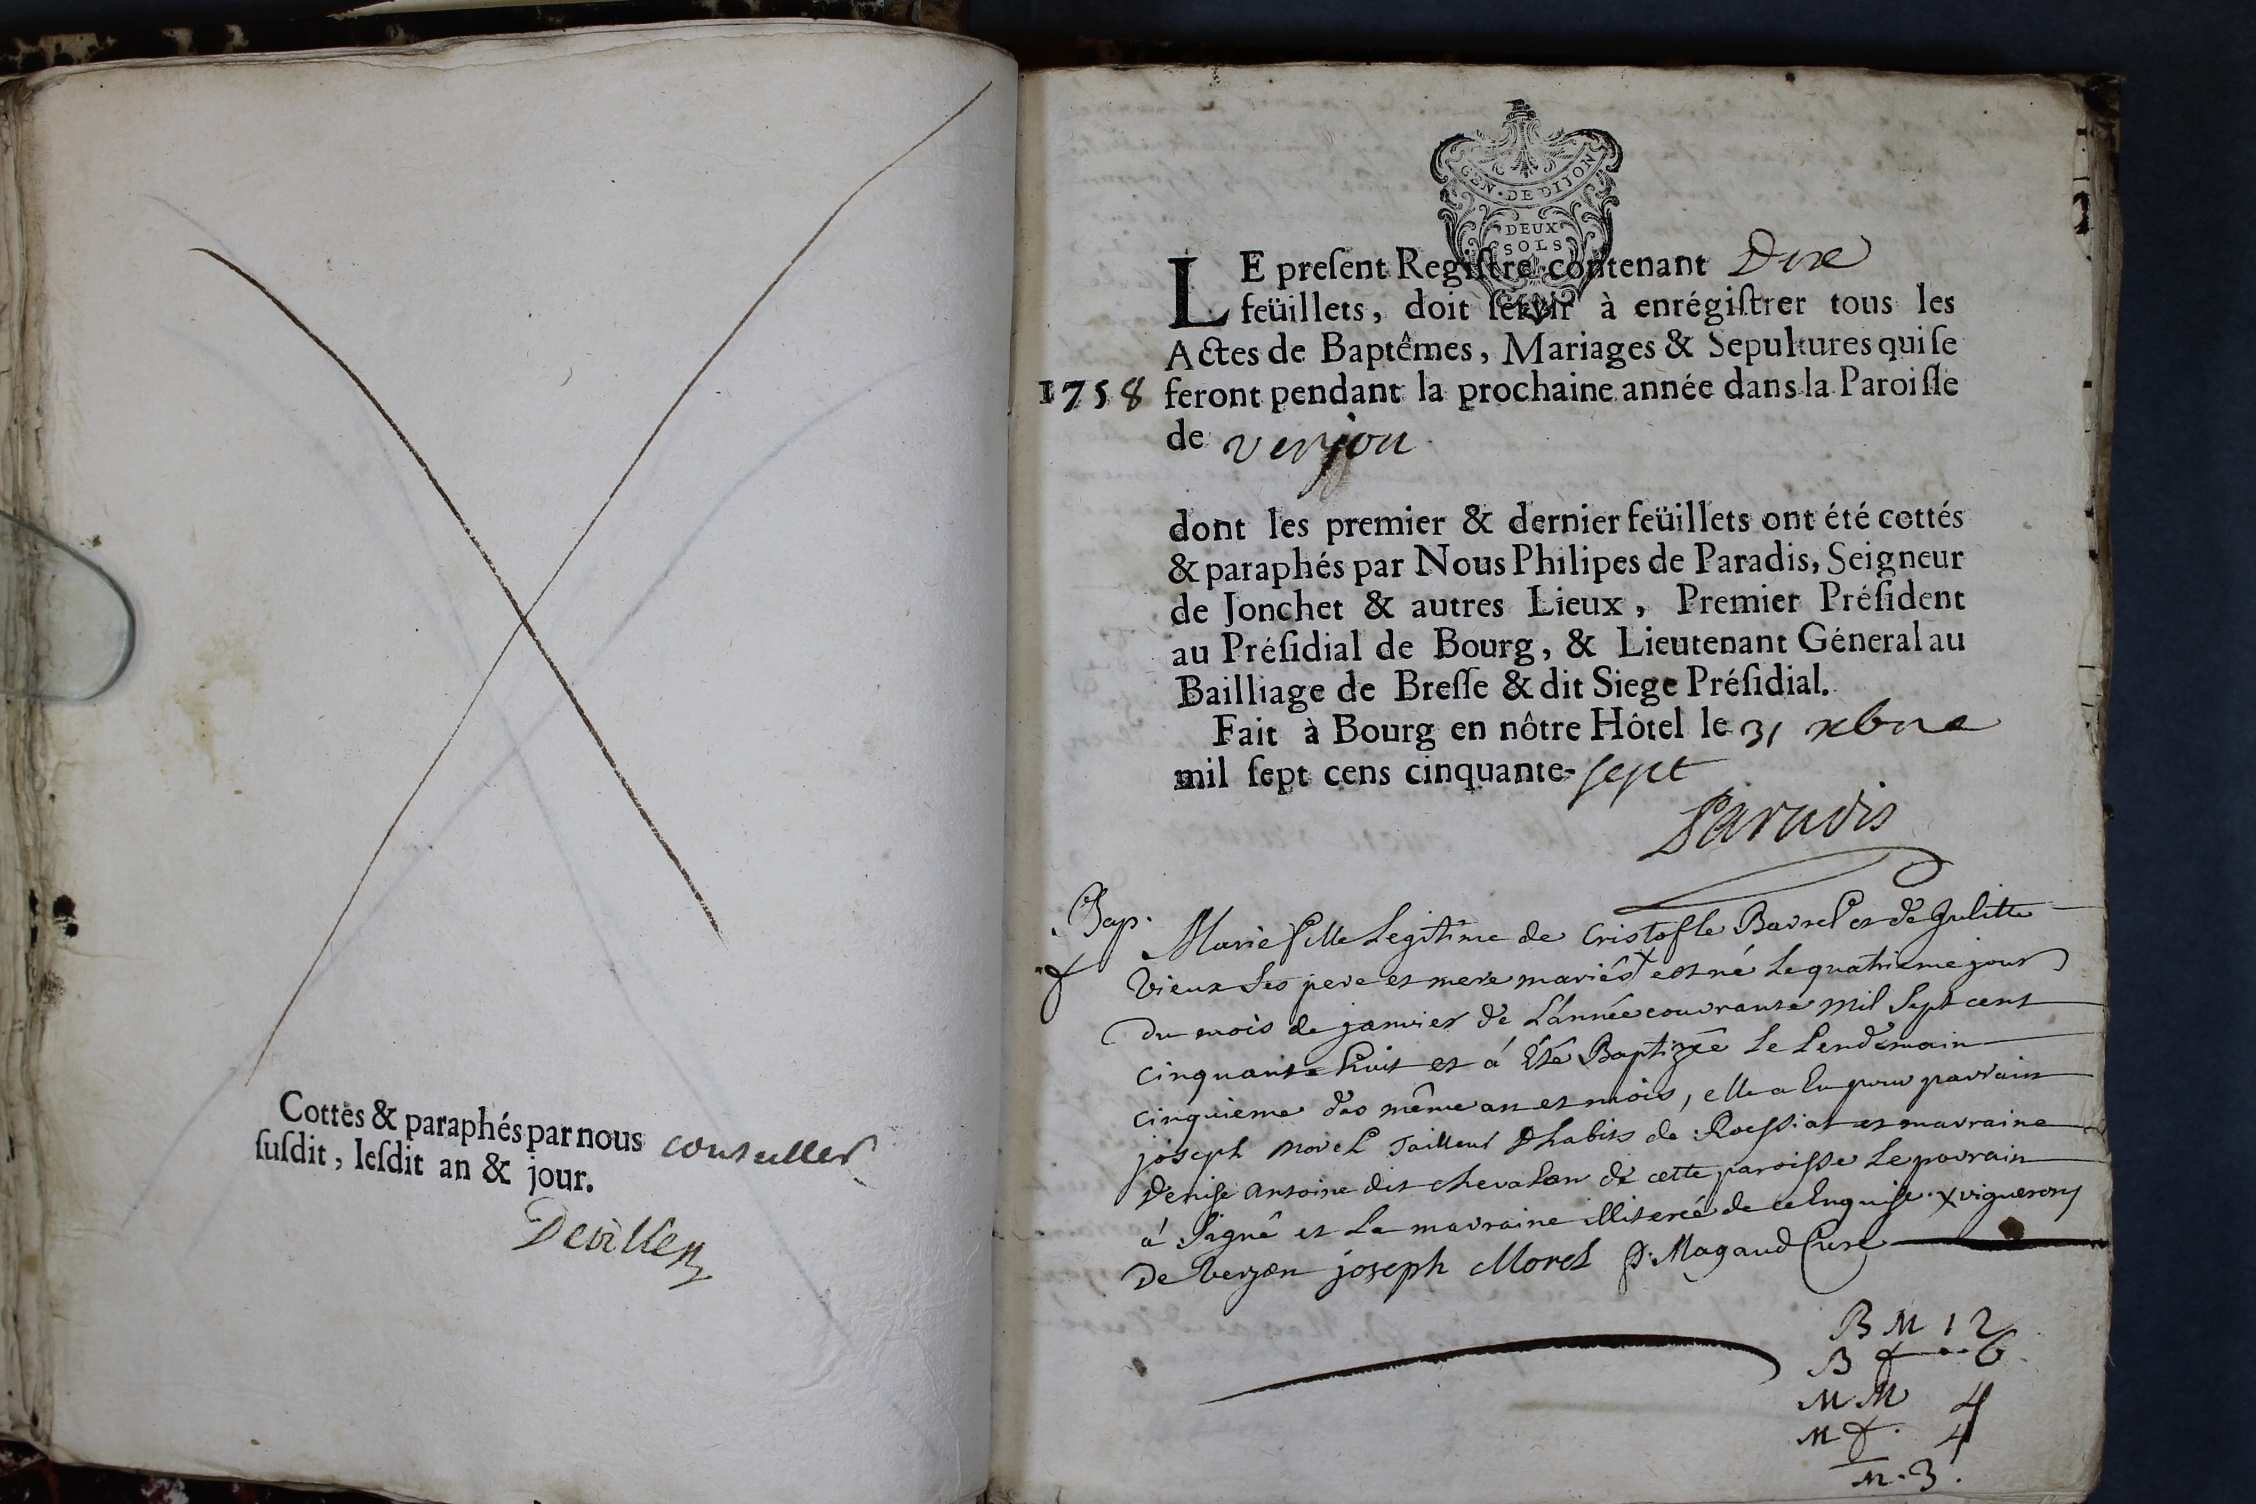 Cottés & paraphés par nous conseiller
susdit, lesdit an & jour.
Deviller
GEN. DE DIJON
DEUX
SOLS
LE present Registre contenant Dix
feüillets, doit servir à enrégistrer tous les
Actes de Baptêmes, Mariages & Sepultures qui se
1758 feront pendant la prochaine année dans la Paroisse
de verjon
dont les premier & dernier feüillets ont été cottés
& paraphés par Nous Philipes de Paradis, Seigneur
de Jonchet & autres Lieux, Premier Président
au Présidial de Bourg, & Lieutenant Géneral au
Bailliage de Bresse & dit Siege Présidial.
Fait à Bourg en nôtre Hôtel le 31 xbre
mil sept cens cinquante-sept
Paradis
Bap. Marie fille Legitime de Cristofle Bavrel et de Julitte
f Vieux Ses pere et mere mariés x est né Le quatrieme jour
Du mois de janvier de L'année courrante mil Sept cent
cinquante huit et á Eté Baptizée Le Lendemain
cinquieme des même an et mois, elle a Eu pour parrain
joseph Morel Tailleur d'habits de Roissiat et marraine
Denise Antoine dit chevalon de cette paroisse Le parrain
á Signé et La marraine illiterée de ce Enquise. x vigneron
De Verjon joseph Morel P. Magaud Curé
B M 12
B f 6
M M 4
M f. 4
M. 3.